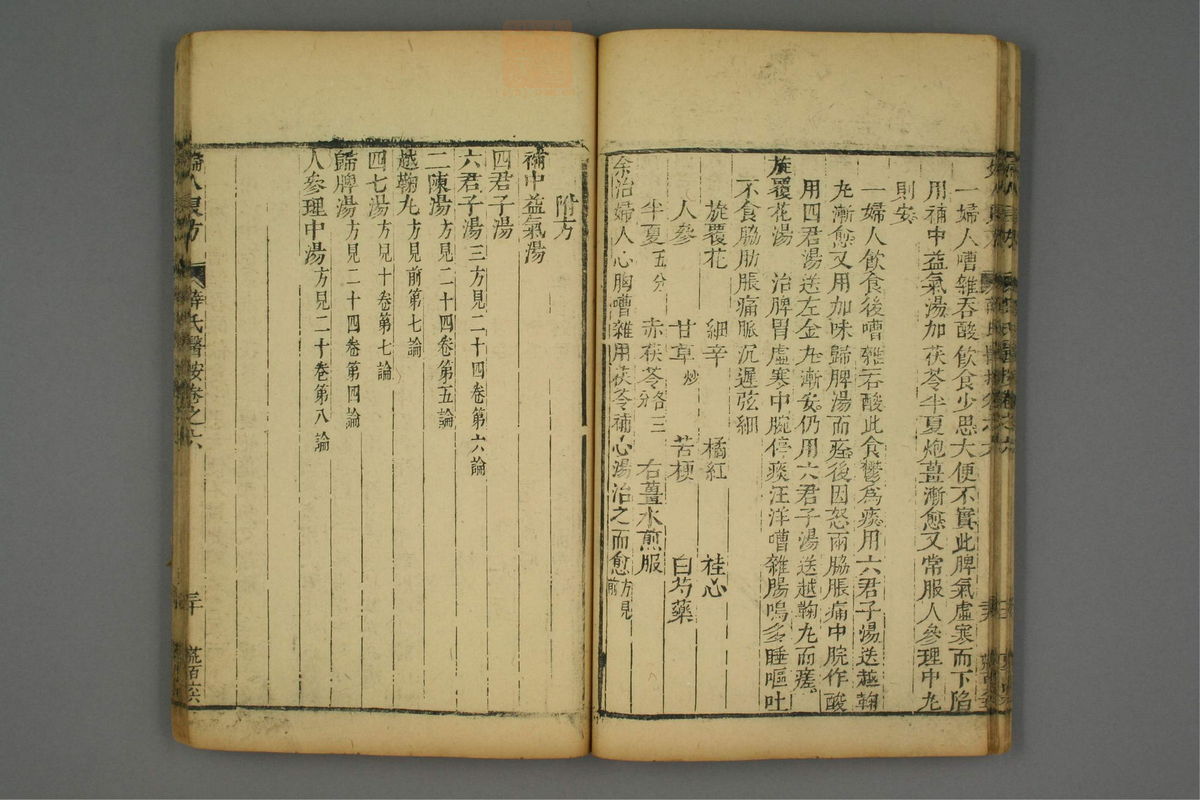 一婦人嘈雜吞酸飲食少思大便不實此脾氣虛寒而下陷
用補中益氣湯加茯苓半夏炮薑漸愈又常服人參理中丸
則安
一婦人飲食後嘈雜吞酸此食鬱爲痰用六君子湯送越鞠
丸漸愈又用加味歸脾湯而痊後因怒兩脇脹痛中脘作酸
用四君湯送左金丸漸安仍用六君子湯送越鞠丸而瘥
旋覆花湯 治脾胃虛寒中脘停痰汪洋嘈雜腸鳴多睡嘔吐
不食脇肋脹痛脈沉遲弦細
旋覆花 細辛 橘紅 桂心
人參 甘草炒 苦梗 白芍藥
半夏五分 赤茯苓各三分 右薑水煎服
余治婦人心胸嘈雜用茯苓補心湯治之而愈方見前
附方
補中益氣湯
四君子湯
六君子湯三方見二十四卷第六論
二陳湯方見二十四卷第五論
越鞠丸方見前第七論
四七湯方見十卷第七論
歸脾湯方見二十四卷第四論
人參理中湯方見二十卷第八論
婦人良方 薛氏醫按卷之六 三十 荒百六